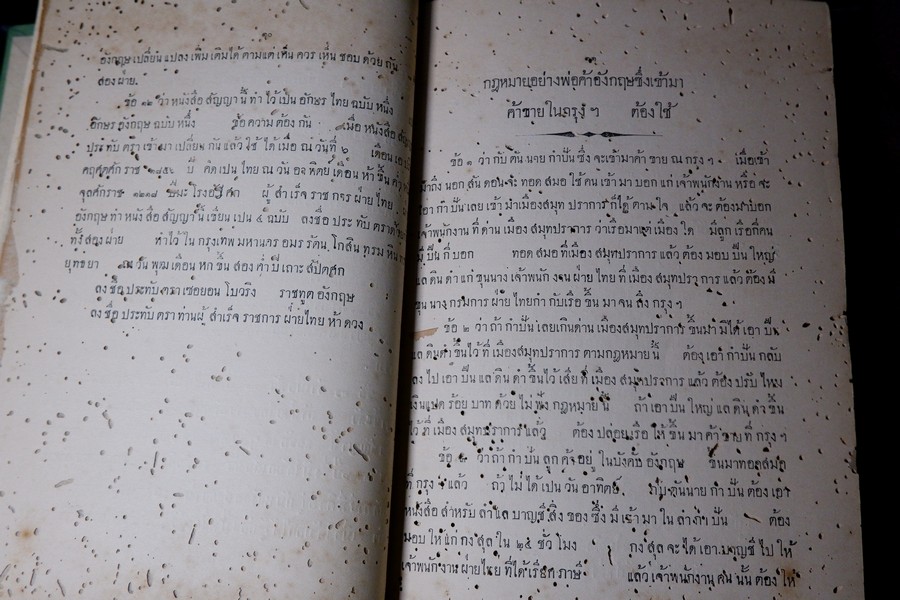 ๖๐
อังกฤษ เปลี่ยน แปลง เพิ่ม เติม ได้ ตาม แต่ เห็น ควร เห็น ชอบ ด้วย กัน
สอง ฝ่าย.
ข้อ ๑๒ ว่า หนังสือ สัญญา นี้ ทำ ไว้ เป็น อักษร ไทย ฉบับ หนึ่ง
อักษร อังกฤษ ฉบับ หนึ่ง ข้อ ความ ต้อง กัน เมื่อ หนังสือ
ประทับ ตรา เข้า มา เปลี่ยน กัน แล้ว ใช้ ได้ เมื่อ ณ วันที่ ๖ เดือน
คฤศตศักราช ๑๘๕๖ ปี คิด เปน ไทย ณ วัน อาทิตย์ เดือน ห้า ขึ้น ค่ำ
จุลศักราช ๑๒๑๘ ปีมะโรงอัฐศก ผู้ สำเร็จ ราชการ ฝ่าย ไทย
อังกฤษ ทำ หนังสือ สัญญา นี้ เขียน เปน ๔ ฉบับ ลงชื่อ ประ ทับ ตรา
ทั้ง สอง ฝ่าย ทำ ไว้ ใน กรุงเทพ มหานคร อมร รัตน โกสิน
ยุทธยา ณ วัน พุฒ เดือน หก ขึ้น สอง ค่ำ ปี เถาะ สัปตศก
ลง ชื่อ ประทับ ตรา เซอยอน โบวริง ราชทูต อังกฤษ
ลง ชื่อ ประทับ ตรา ท่าน ผู้ สำเร็จ ราชการ ฝ่าย ไทย ห้า ดวง
กฎหมายอย่างพ่อค้าอังกฤษซึ่งเข้ามา
ค้าขายในกรุง ฯ ต้องใช้
ข้อ ๑ ว่า กับ ตัน นาย กำปั่น ซึ่ง จะ เข้า มา ค้า ขาย ณ กรุง ฯ เมื่อ เข้า
มา ถึง นอก สัน ดอน จะ ทอด สมอ ใช้ คน เข้า มา บอก แก่ เจ้า พนักงาน หรือ จะ
เอา กำ ปั่น เลย เข้า มา เมือง สมุท ปราการ ก็ ได้ ตาม ใจ แล้ว จะ ต้อง มา บอก
เจ้า พนักงาน ที่ ด่าน เมือง สมุทปราการ ว่า เรือ มา แต่ เมือง ใด มี ลูก เรือ กี่ คน
มี ปืน กี่ บอก ทอด สมอ ที่ เมือง สมุทปราการ แล้ว ต้อง มอบ ปืน ใหญ่
แล ดิน ดำ แก่ ขุนนาง เจ้า พนักงาน ฝ่าย ไทย ที่ เมือง สมุทปราการ แล้ว ต้อง มี
ขุน นาง กรมการ ฝ่าย ไทย กำ กับ เรือ ขึ้น มา จน ถึง กรุง ฯ
ข้อ ๒ ว่า ถ้า กำ ปั่น เลย เกิน ด่าน เมือง สมุทปราการ ขึ้น มา มิ ได้ เอา ปืน
แล ดินดำ ขึ้น ไว้ ที่ เมือง สมุทปราการ ตาม กฎหมาย นี้ ต้อง เอา กำ ปั่น กลับ
ลง ไป เอา ปืน แล ดิน ดำ ขึ้น ไว้ เสีย ที่ เมือง สมุทปราการ แล้ว ต้อง ปรับ ไหม
เงิน แปด ร้อย บาท ด้วย ไม่ ฟัง กฎหมาย นี้ ถ้า เอา ปืน ใหญ่ แล ดิน ดำ ขึ้น
ไว้ ที่ เมือง สมุทปราการ แล้ว ต้อง ปล่อย เรือ ให้ ขึ้น มา ค้า ขาย ที่ กรุง ฯ
ข้อ ว่า ถ้า กำ ปั่น ลูก ค้า อยู่ ใน บังคับ อังกฤษ ขึ้น มา ทอด สมอ
ที่ กรุง ฯ แล้ว ถ้า ไม่ ได้ เปน วัน อาทิตย์ กับ ตัน นาย กำ ปั่น ต้อง เอา
หนังสือ สำหรับ ลำ แล บาญชี สิ่ง ของ ซึ่ง มี เข้า มา ใน ลำ กำ ปั่น ต้อง
มอบ ให้ แก่ กงสุล ใน ๒๔ ชั่ว โมง กงสุล จะ ได้ เอา บาญชี ไป ให้
เจ้า พนักงาน ฝ่าย ไทย ที่ ได้ เรียก ภาษี แล้ว เจ้า พนักงาน คน นั้น ต้อง ให้